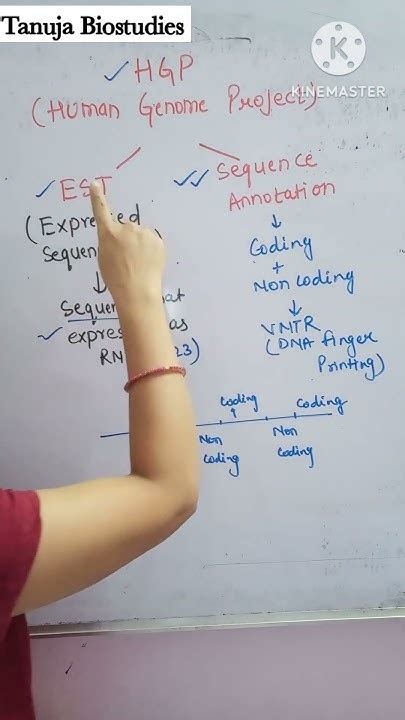 Tanuja Biostudies
K
KINEMASTER
HGP
(Human Genome Project)
EST
(Expressed
Sequen
Sequen at
expres as
RN 23)
Sequence
Annotation
Coding
+
Non Coding
VNTR
(DNA finger
Printing)
Coding
Coding
Non
Coding
Non
Coding